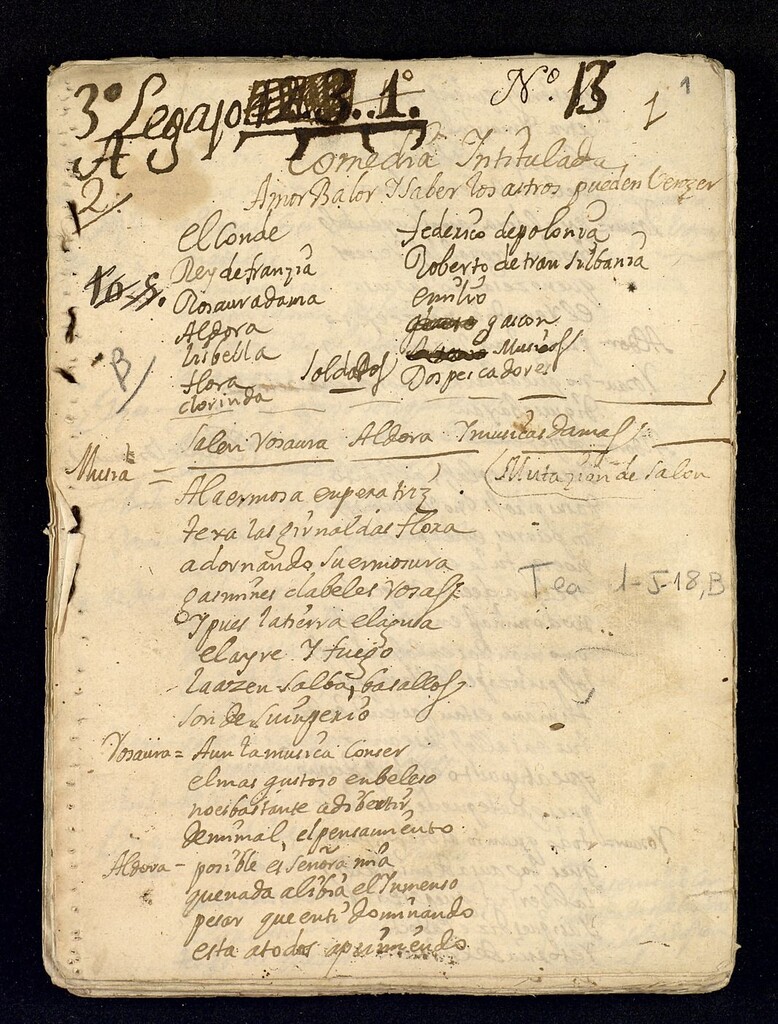 3º Legajo 1º. Nº. 13 1 1
A
2.
Comedia Intitulada
Amor Balor Y Saber los astros pueden Venzer
el Conde
Rey de franzia
Rosaura dama
Aldora
lisbella
flora
clorinda
Soldados
federico de polonia
Roberto de transilbania
emilio
gascon
Musicos
Dos pescadores
B
Salen rosaura Aldora Y musicas damas
Mutazion de Salon
Musica =
A la ermosa enperatriz
texa las girnaldas flora
adornando su ermosura
gasmines clabeles rosas
Y pues la tierra el agua
el ayre Y fuego
la azen salba, basallos
son de su inperio
Tea 1-5-18, B
rosaura = Aun la musica Con ser
el mas gustoso enbeleso
no es bastante a dibertir
de mi mal, el pensamiento
Aldora - posible es Señora mia
que nada alibia el Inmenso
pesar que en ti dominando
esta a todos aprimiendo